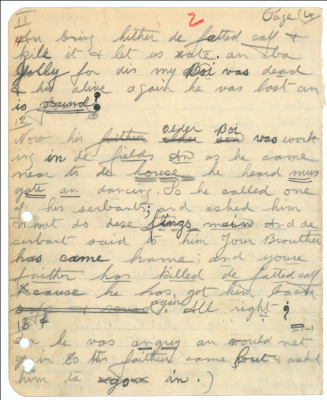 11 2 Page 14
An bring hither de fatted calf &
kill it & let us eate an ba
Jolly for dis my Boi was dead
& his alive again he was lost an
is found.
12
Now his faither older Boi was work-
ing in de fields An as he came
near to de house he heard mus
an dancing. So he called one
of his serbants; and asked him
what do dese tings main And de
serbart said to him Your Brouther
has came hame; and youre
faither has killed de fatted calf
because he has got him back
again. All right;
13
An he was angry an would nat
go in So his faither came out & asked
him ta go in.)